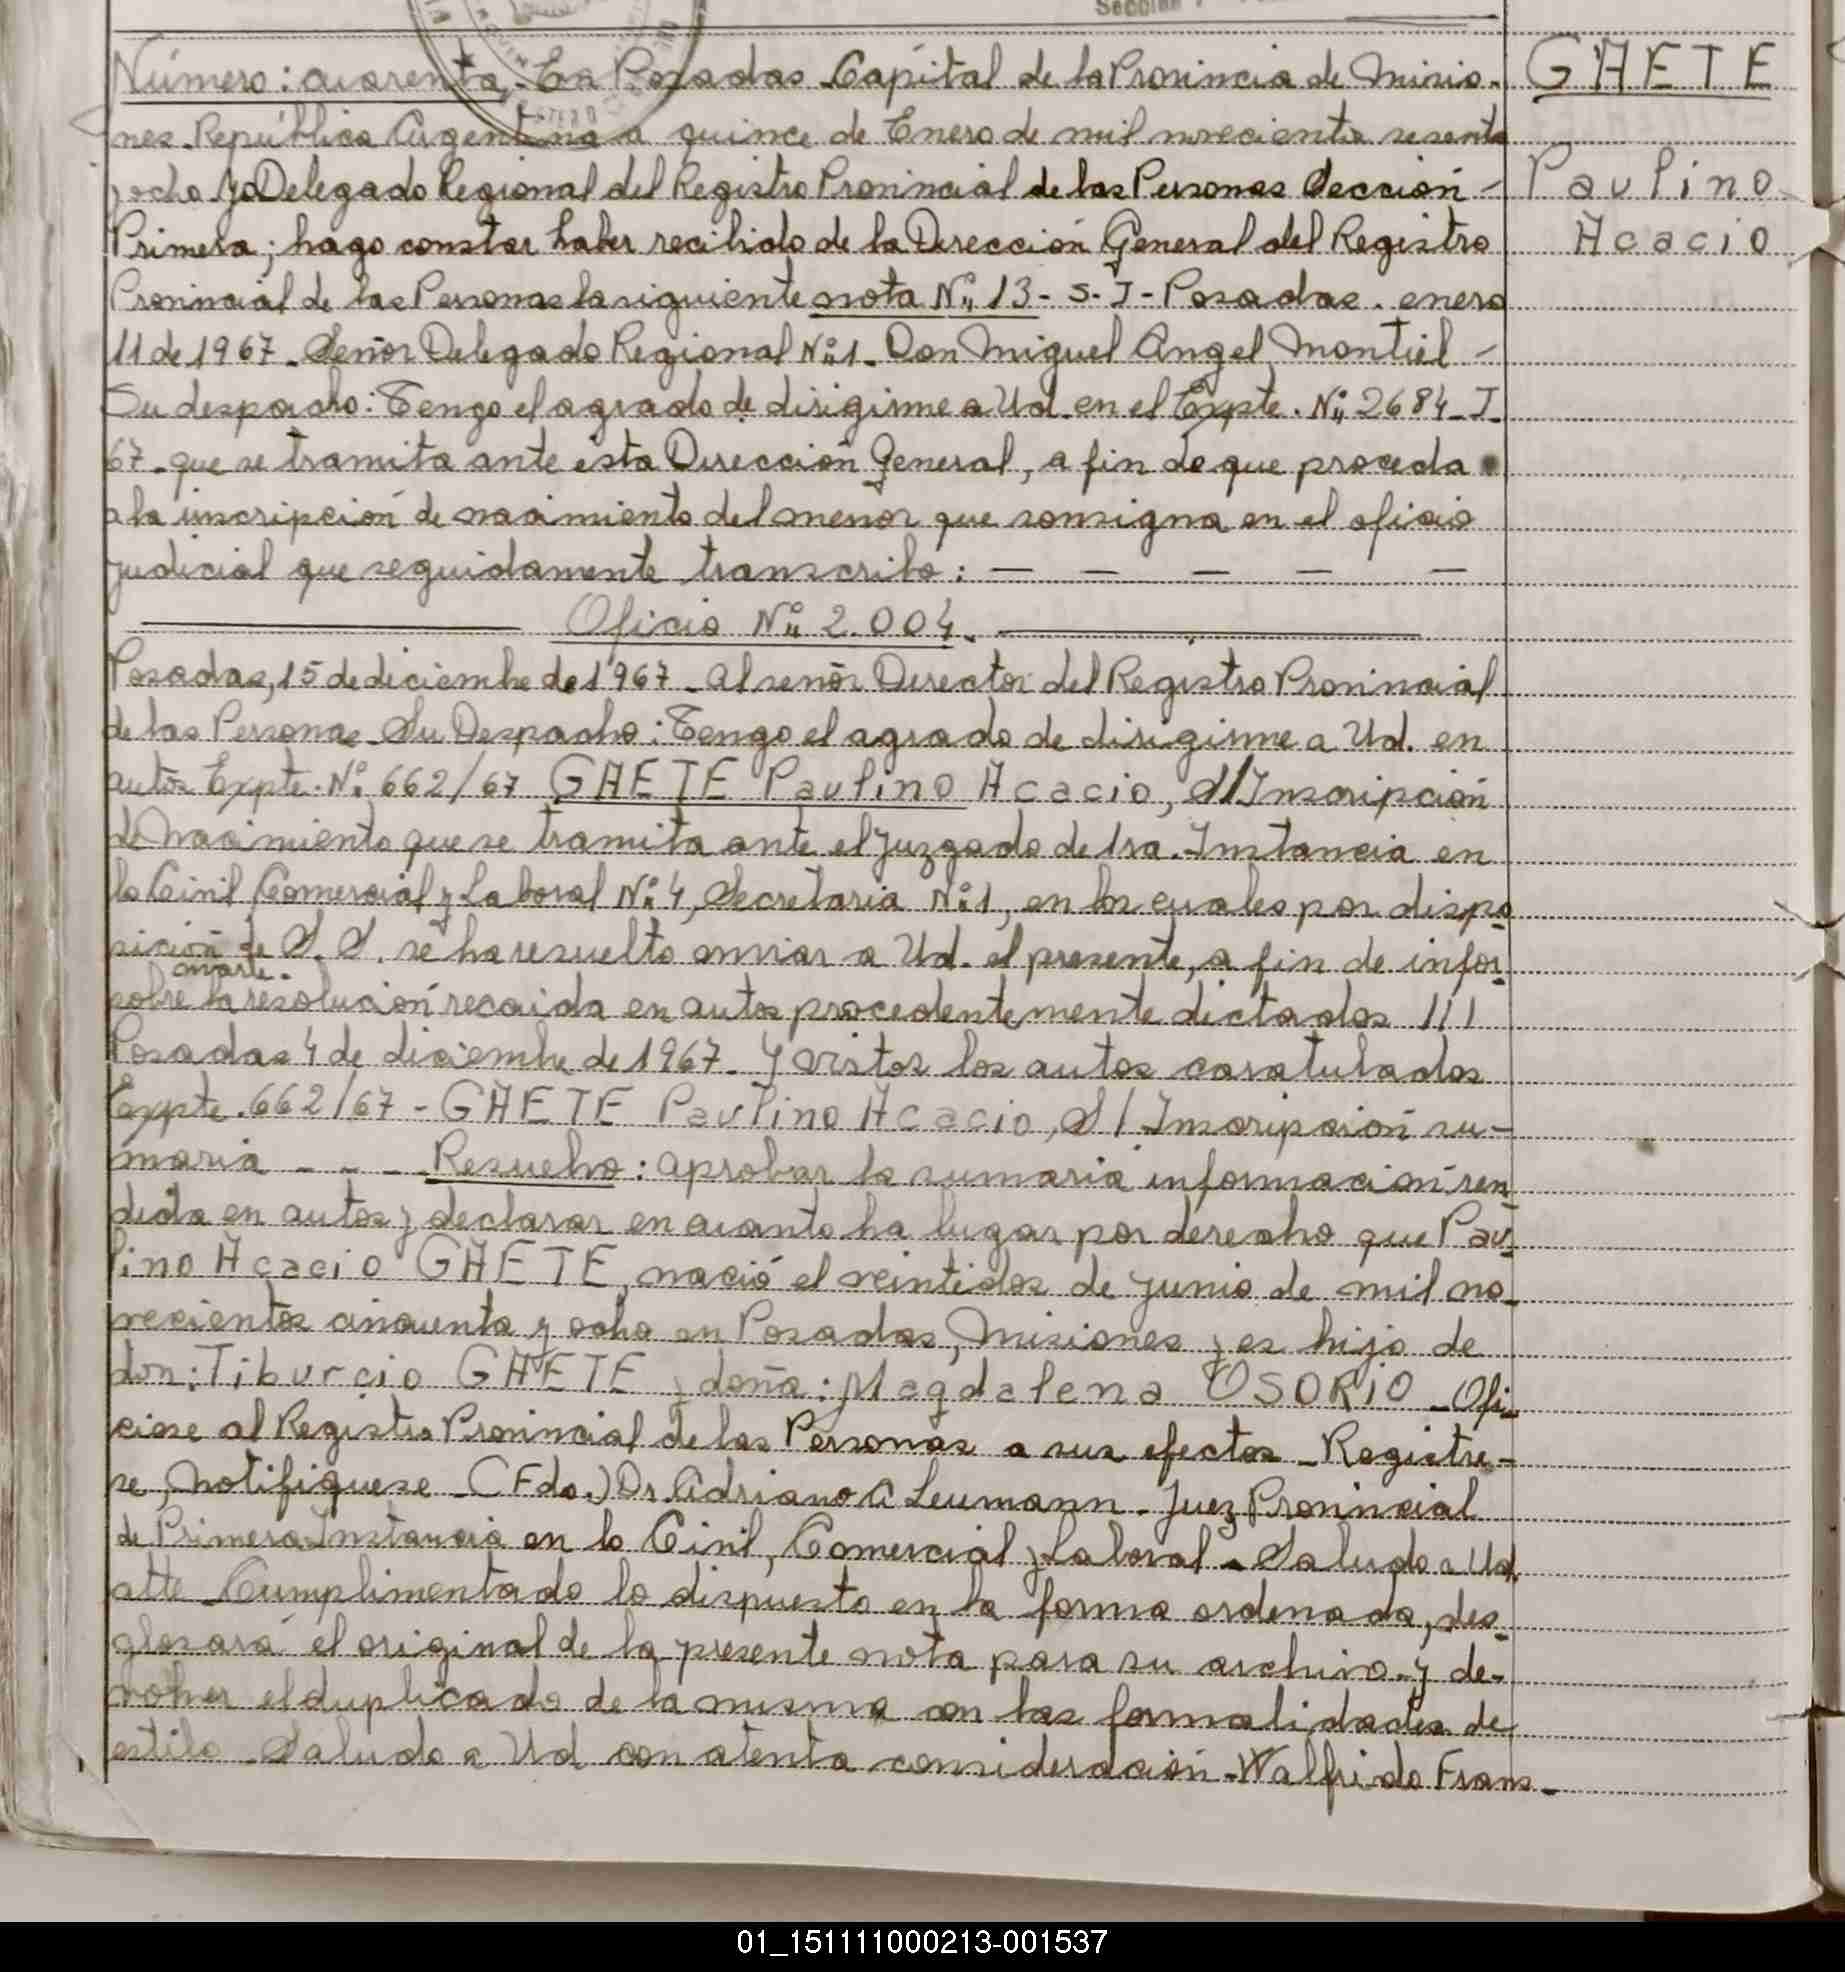 Número: cuarenta. En Posadas Capital de la Provincia de Misio-
GAETE
nes. República Argentina a quince de Enero de mil novecientos sesenta
y ocho Yo Delegado Regional del Registro Provincial de las Personas Sección -
Paulino
Primera; hago constar haber recibido de la Dirección General del Registro
Acacio
Provincial de las Personas la siguiente nota Nº 13 - S. J - Posadas. enero
11 de 1967. Señor Delegado Regional Nº 1. Don Miguel Angel Montiel -
Su despacho: Tengo el agrado de dirigirme a Ud. en el Expte. Nº 2684 - J.
67. que se tramita ante esta Dirección General, a fin de que proceda
a la inscripción de nacimiento del menor que consigna en el oficio
judicial que seguidamente transcribo: — — — — —
Oficio Nº 2.004.
Posadas, 15 de diciembre de 1967. Al señor Director del Registro Provincial
de las Personas. Su Despacho: Tengo el agrado de dirigirme a Ud. en
autos Expte. Nº 662/67 GAETE Paulino Acacio, S/Inscripción
de Nacimiento que se tramita ante el Juzgado de 1ra. Instancia en
lo Civil Comercial y Laboral Nº 4, Secretaria Nº 1, en los cuales por dispo
sición de S. S. se ha resuelto enviar a Ud. el presente, a fin de infor-
marle.
sobre la resolución recaida en autos procedentemente dictados ///
Posadas 4 de diciembre de 1967. Y vistos los autos caratulados
Expte. 662/67 - GAETE Paulino Acacio, S/ Inscripción su-
maria - - - Resuelvo: aprobar la sumaria información ren
dida en autos y declarar en cuanto ha lugar por derecho que Pau-
lino Acacio GAETE, nació el veintidos de junio de mil no-
vecientos cincuenta y ocho en Posadas, Misiones y es hijo de
don: Tiburcio GAETE y doña: Magdalena OSORIO - Ofi-
ciese al Registro Provincial de las Personas a sus efectos - Registre-
se, Notifiquese - (Fdo.) Dr. Adriano A Leumann - Juez Provincial
de Primera Instancia en lo Civil, Comercial y Laboral - Saludo a Ud.
atte Cumplimentado lo dispuesto en la forma ordenada, des-
glosará el original de la presente nota para su archivo y de-
volver el duplicado de la misma con las formalidades de
estilo - Saludo a Ud con atenta consideración - Walfrido Frans-
01_151111000213-001537